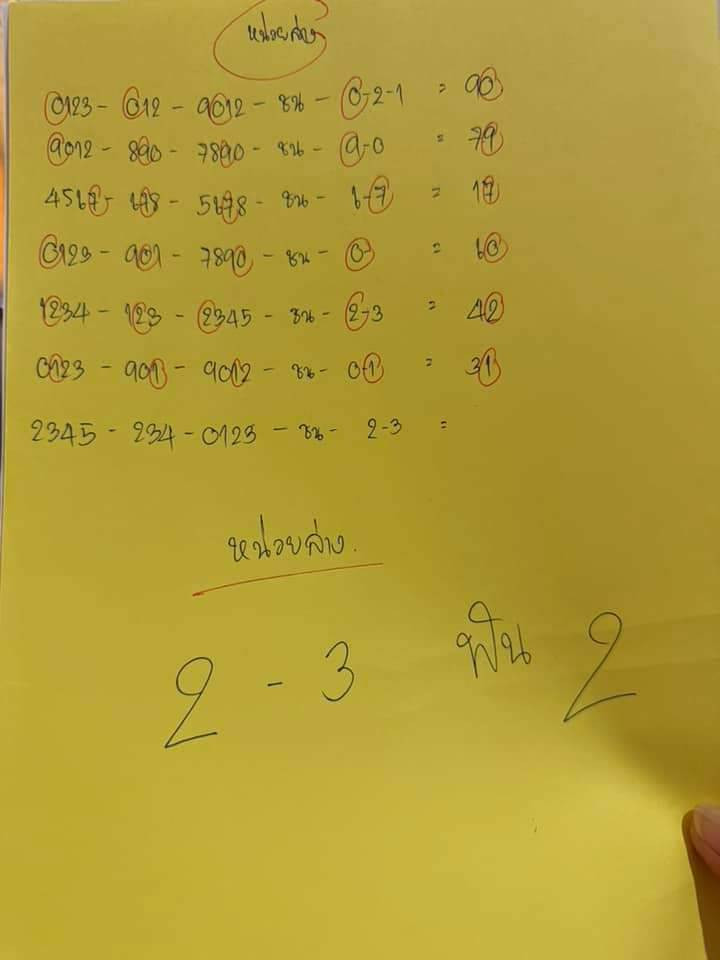 หน่วยล่าง
0123 - 012 - 9012 - ชน - 0-2-1 = 90
9012 - 890 - 7890 - ชน - 9-0 = 79
4567 - 678 - 5678 - ชน - 6-7 = 17
0123 - 901 - 7890 - ชน - 0- = 60
1234 - 123 - 2345 - ชน - 2-3 = 42
0123 - 901 - 9012 - ชน - 0-1 = 31
2345 - 234 - 0123 - ชน - 2-3 =
หน่วยล่าง.
2 - 3 ฟัน 2